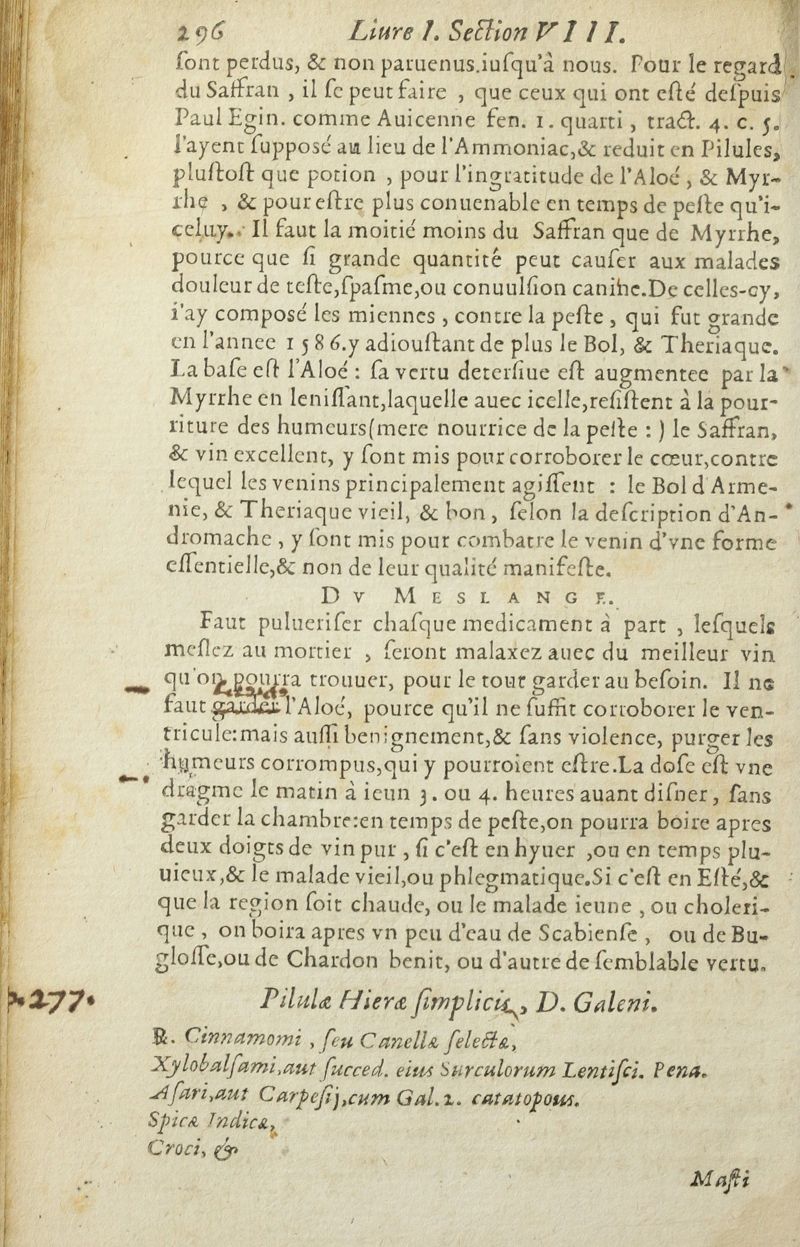 296 Liure I. Section VIII.
ſont perdus, & non paruenus.iuſqu'à nous. Pour le regard
du Saffran , il ſe peut faire , que ceux qui ont eſté deſpuis
Paul Egin. comme Auicenne fen. 1. quarti , tract. 4. c. 5.
l'ayent ſuppoſé au lieu de l'Ammoniac,& reduit en Pilules,
pluſtoſt que potion , pour l'ingratitude de l'Aloé , & Myr-
rhe , & pour eſtre plus conuenable en temps de peſte qu'i-
celuy. Il faut la moitié moins du Saffran que de Myrrhe,
pource que ſi grande quantité peut cauſer aux malades
douleur de teſte,ſpaſme,ou conuulſion caninc.De celles-cy,
i'ay composé les miennes , contre la peſte , qui fut grande
en l'annee 1586.y adiouſtant de plus le Bol, & Theriaque.
La baſe eſt l'Aloé : ſa vertu deterſiue eſt augmentee par la
Myrrhe en leniſſant,laquelle auec icelle,reſiſtent à la pour-
riture des humeurs(mere nourrice de la peſte : ) le Saffran,
& vin excellent, y ſont mis pour corroborer le cœur,contre
lequel les venins principalement agiſſent : le Bol d'Arme-
nie, & Theriaque vieil, & bon , ſelon la deſcription d'An-
dromache , y ſont mis pour combatre le venin d'vne forme
eſſentielle,& non de leur qualité manifeſte.
DV MESLANGE.
Faut puluerifer chaſque medicament à part , leſquels
meſlez au mortier , ſeront malaxez auec du meilleur vin
qu'on pourra trouuer, pour le tout garder au beſoin. Il ne
faut garder l'Aloé, pource qu'il ne ſuffit corroborer le ven-
tricule:mais auſſi benignement,& ſans violence, purger les
humeurs corrompus,qui y pourroient eſtre.La doſe eſt vne
dragme le matin à ieun 3. ou 4. heures auant diſner , ſans
garder la chambre:en temps de peſte,on pourra boire apres
deux doigts de vin pur , ſi c'eſt en hyuer ,ou en temps plu-
uieux,& le malade vieil,ou phlegmatique.Si c'eſt en Eſté,&
que la region ſoit chaude, ou le malade ieune , ou choleri-
que , on boira apres vn peu d'eau de Scabienſe , ou de Bu-
gloſſe,ou de Chardon benit, ou d'autre de ſemblable vertu.
277. Pilulæ Hieræ ſimplicis, D. Galeni.
℞. Cinnamomi , ſeu Canellæ ſelectæ,
Xylobalſami,aut ſucced. eius Surculorum Lentiſci. Pena.
Aſari,aut Carpeſij,cum Gal.1. catatopous.
Spicæ Indicæ,
Croci, &
Maſti